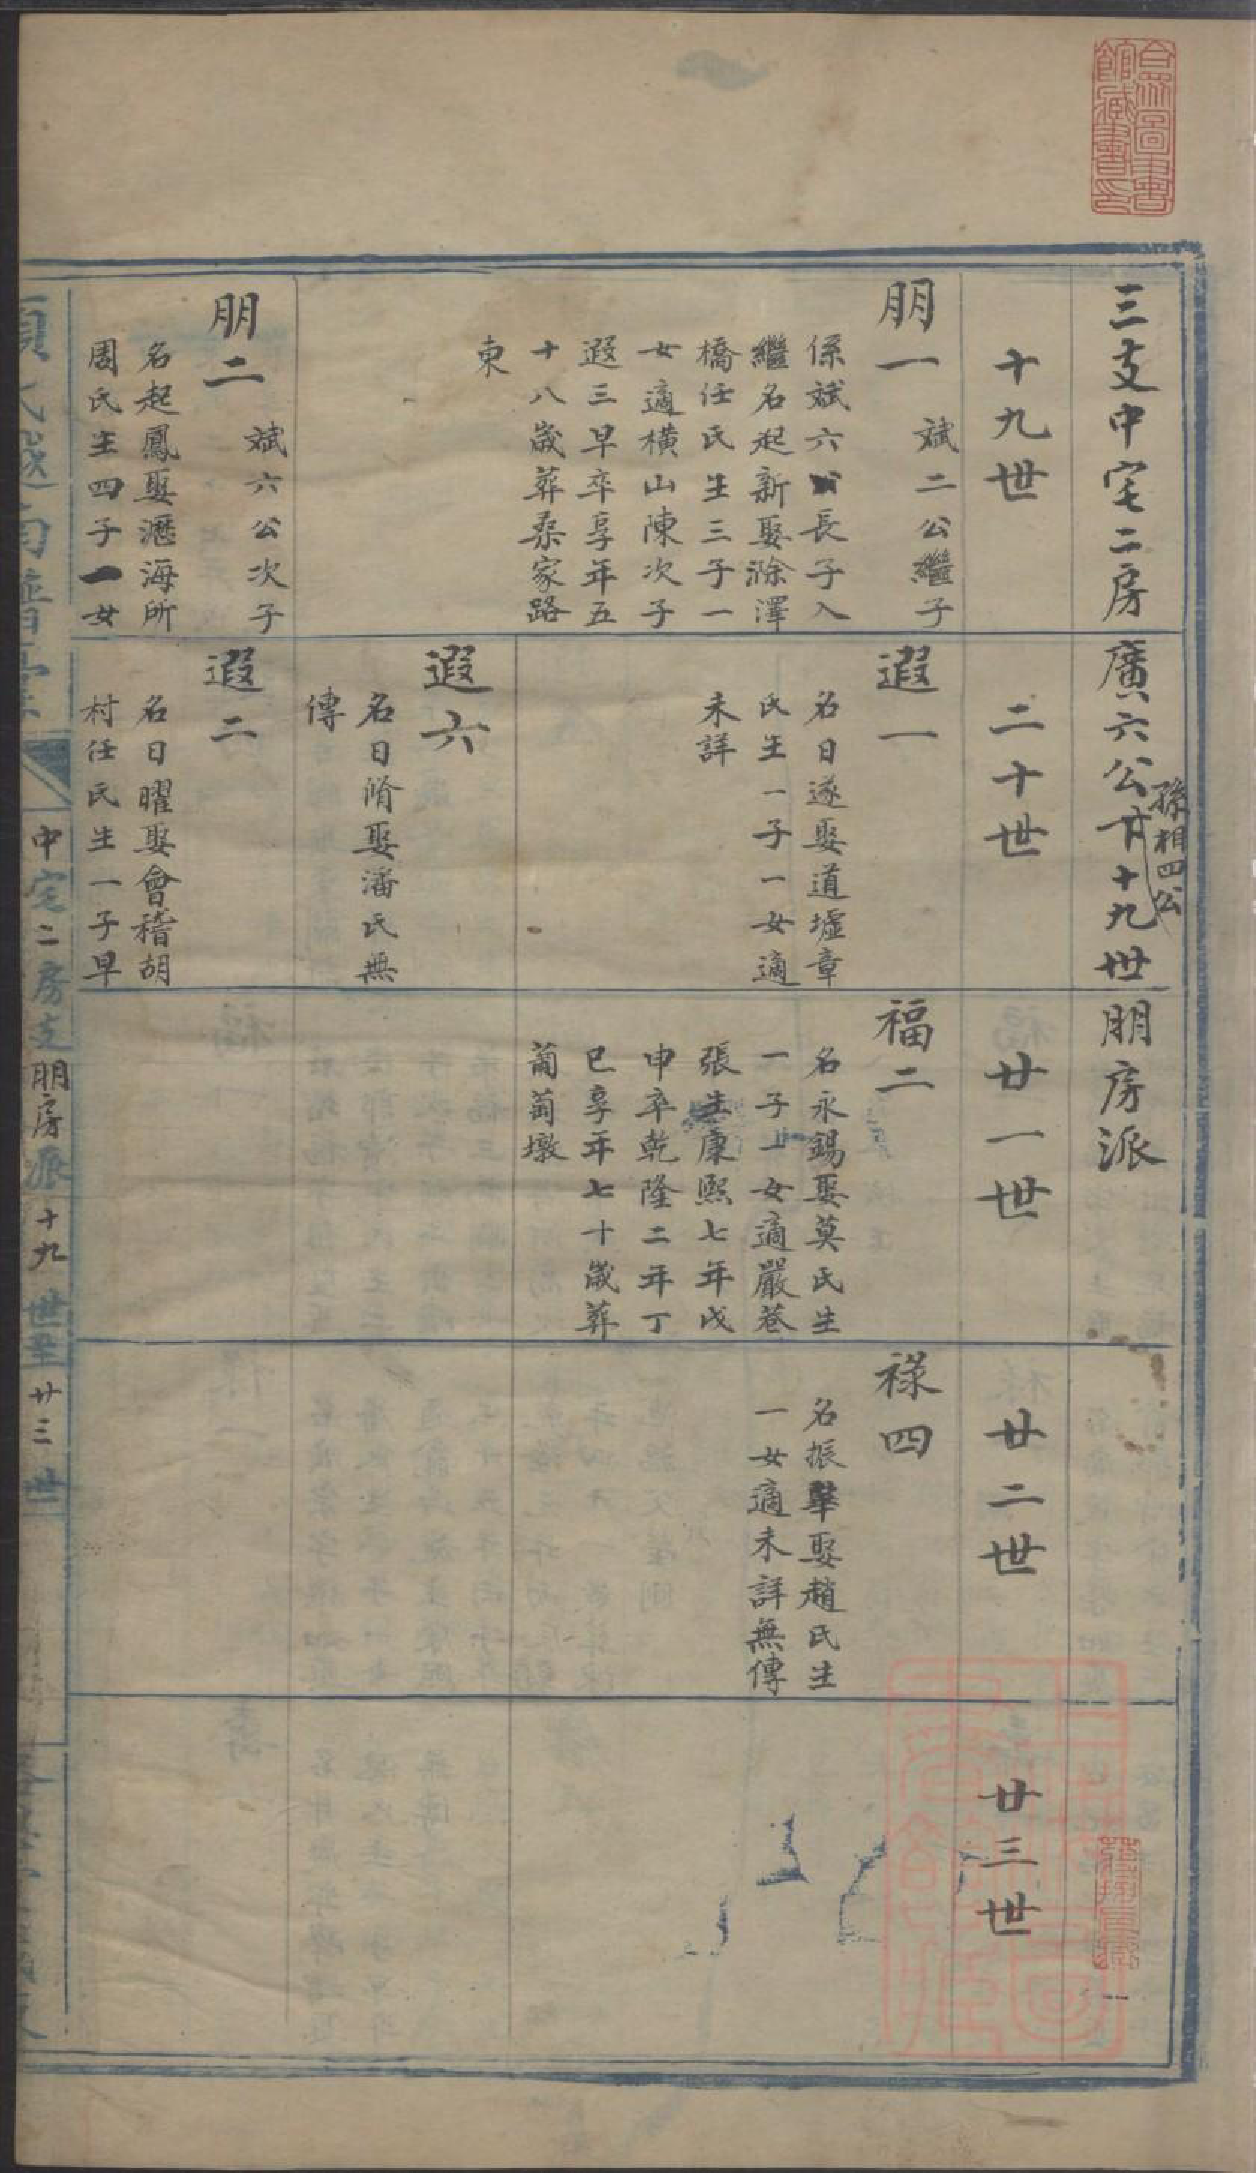 三支中宅二房廣六公下十九世朋房派
孫相四公
十九世
二十世
廿一世
廿二世
廿三世
朋一
斌二公繼子
係斌六公長子入
繼名起新娶滁澤
橋任氏生三子一
女適橫山陳次子
遐三早卒享年五
十八歲葬桑家路
東
朋二
斌六公次子
名起鳳娶瀝海所
周氏生四子一女
遐一
名日遂娶道墟章
氏生一子一女適
未詳
遐六
名日脩娶潘氏無
傳
遐二
名日曜娶會稽胡
村任氏生一子早
福二
名永錫娶莫氏生
一子一女適嚴巷
張生康熙七年戊
申卒乾隆二年丁
巳享年七十歲葬
葡萄墩
祿四
名振華娶趙氏生
一女適未詳無傳
中宅二房支朋房派十九世至廿三世
合眾圖書館藏書印